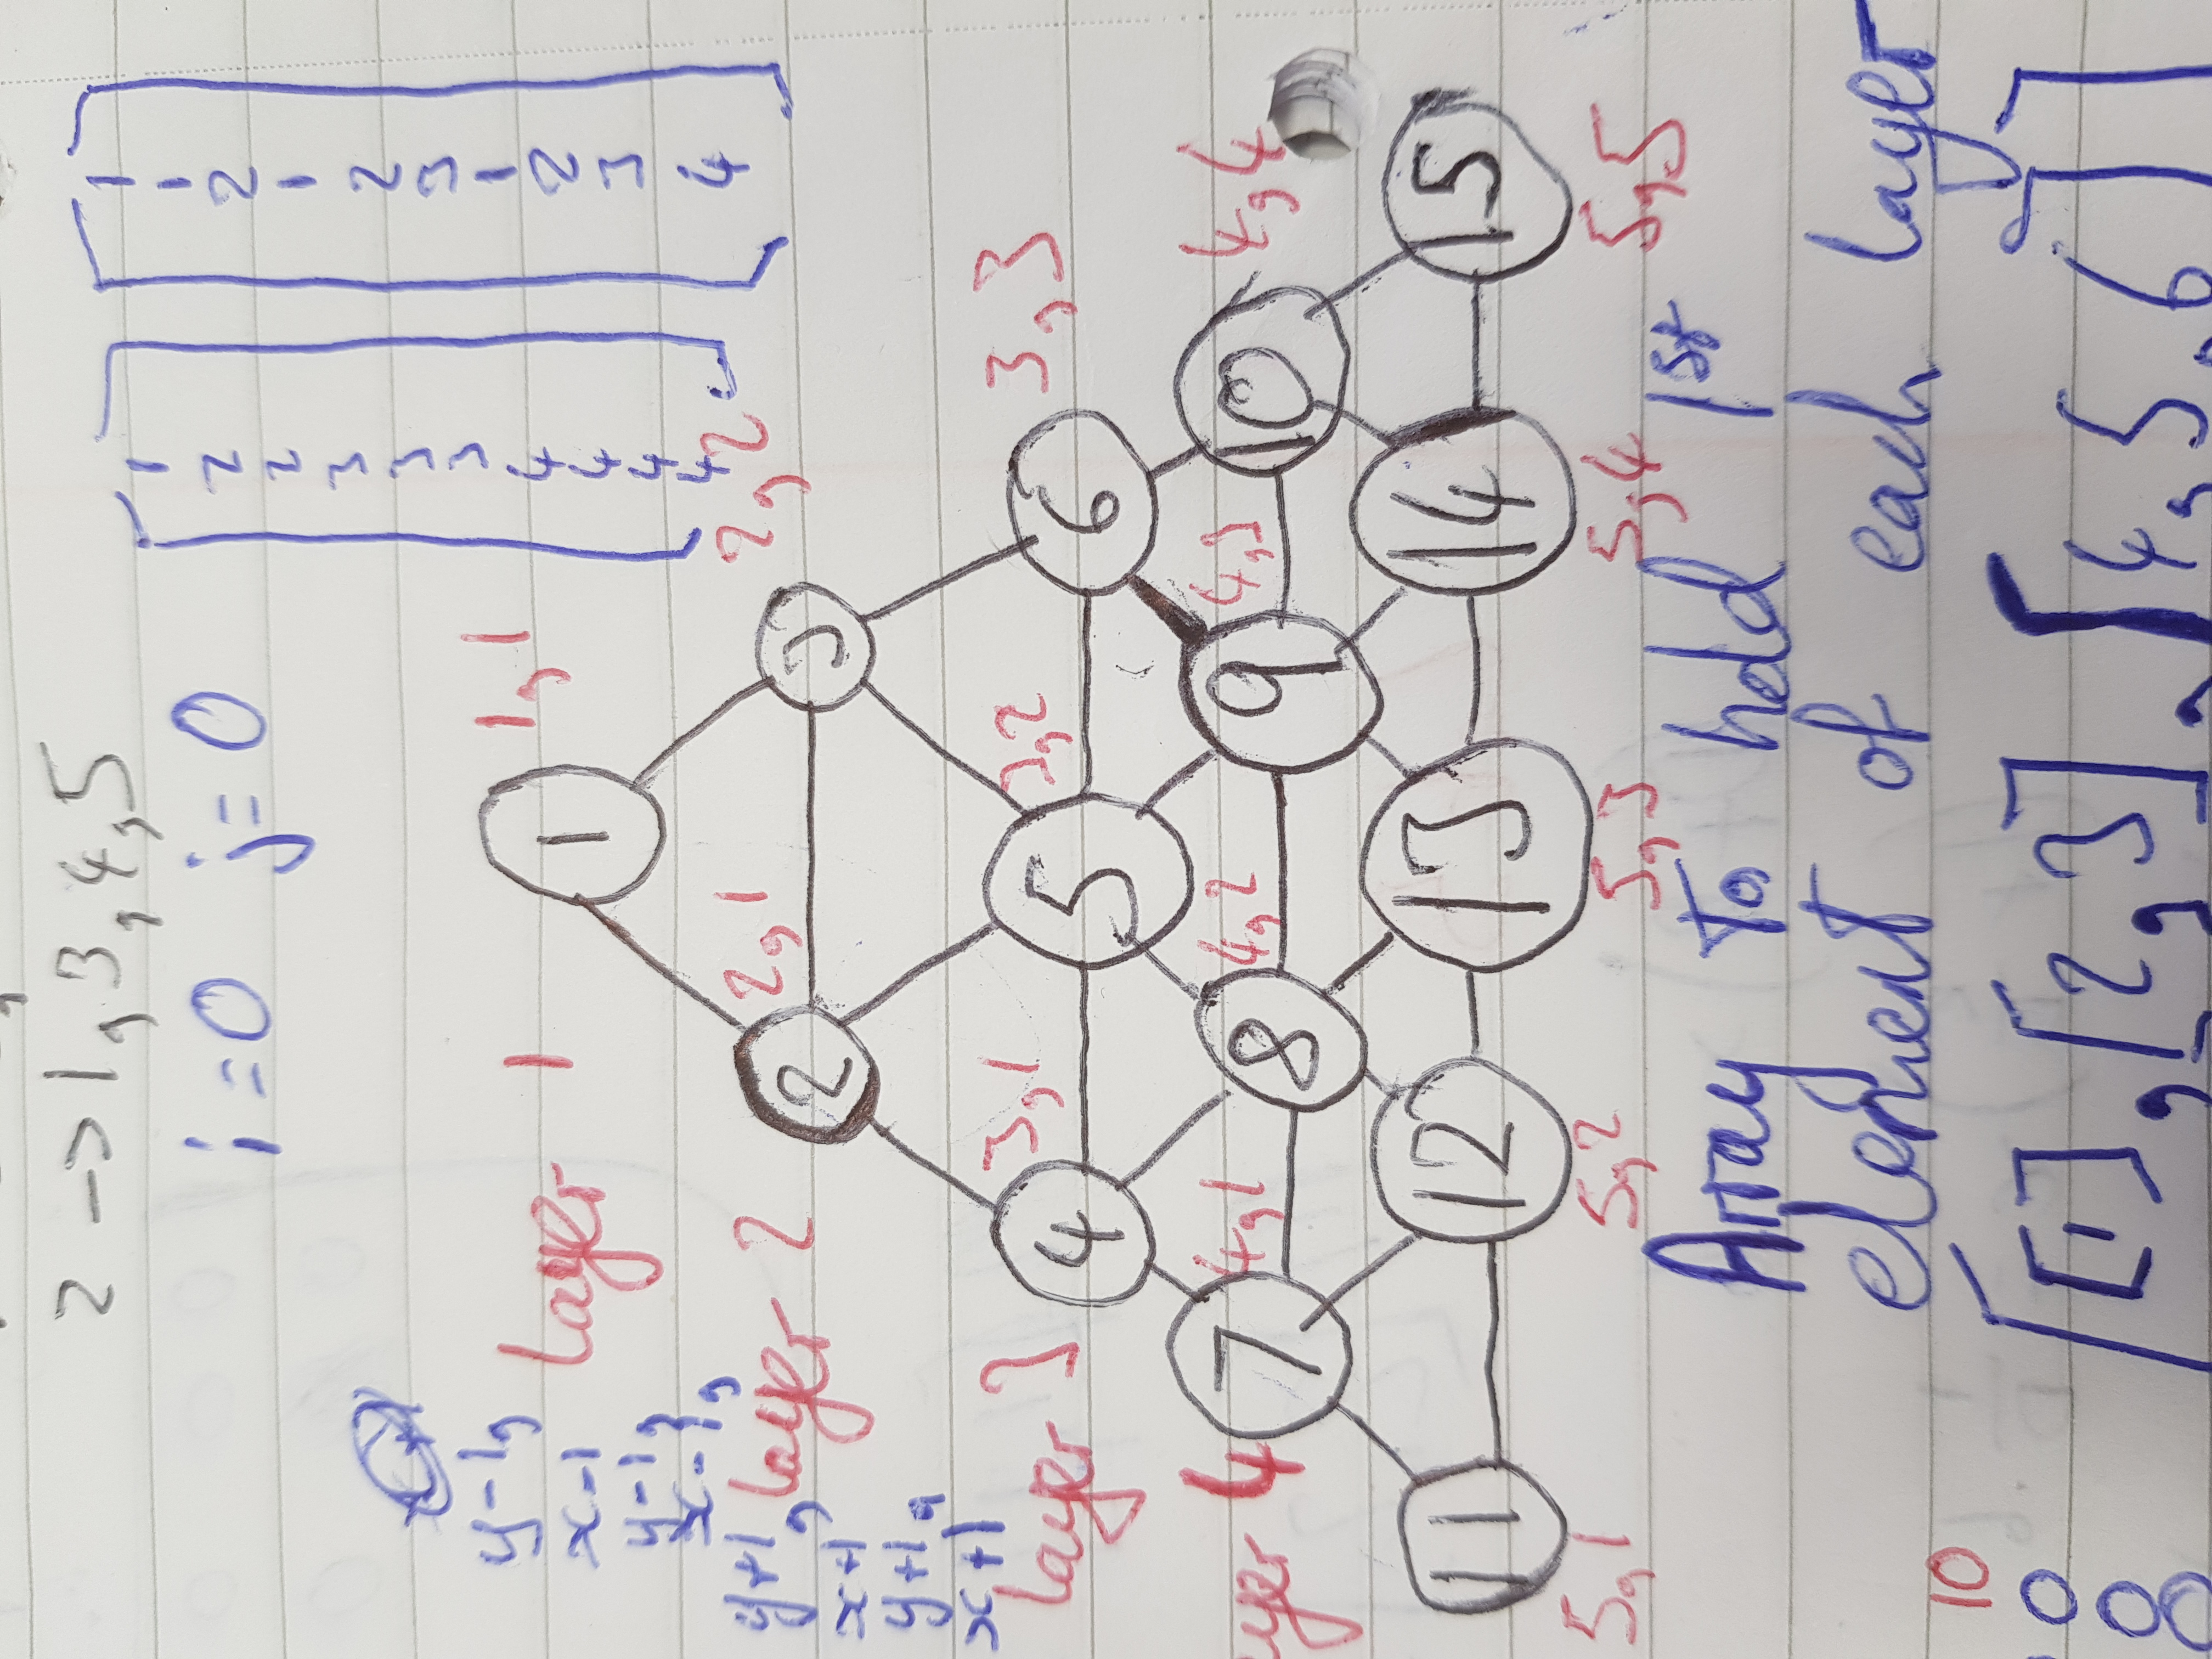 2 -> 1, 3, 4, 5
i = 0 j = 0
1
2
2
3
3
3
4
4
4
4
1
1
2
1
2
3
1
2
3
4
y-1,
x-1
y-1,
x-1,
y+1,
x+1
y+1,
x+1
layer 1
1
1,1
layer 2
2
2,1
3
2,2
layer 3
4
3,1
5
3,2
6
3,3
4
7
4,1
8
4,2
9
4,3
10
4,4
11
12
13
14
15
5,1
5,2
5,3
5,4
5,5
Array to hold 1st
element of each layer
10
0
[[1], [2, 3], [4, 5, 6]]